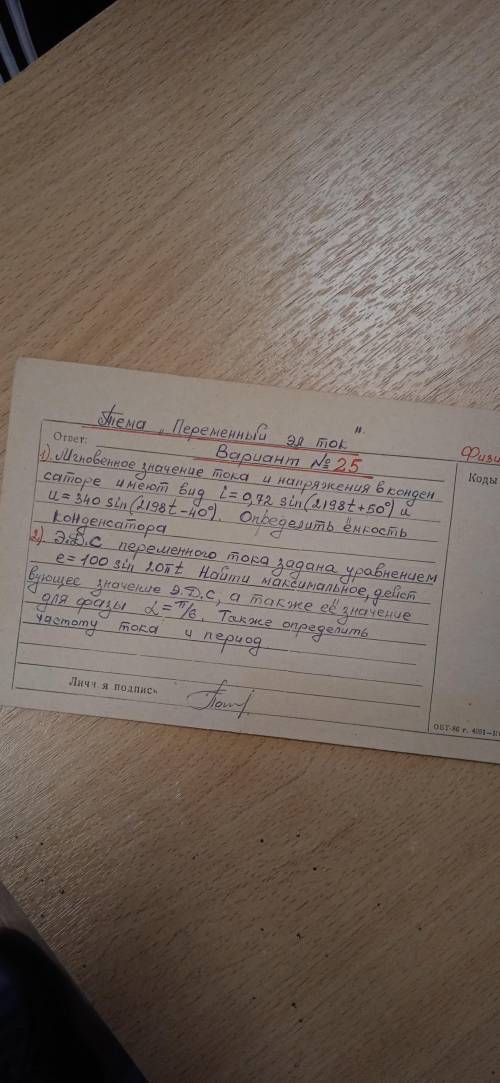 Тема „Переменный эл ток".
Физи
Ответ: Вариант № 25
Коды
1). Мгновенное значение тока и напряжения в конден
саторе имеют вид i = 0,72 sin(2198t+50°) и
u = 340 sin(2198t-40°). Определить ёмкость
конденсатора
2). Э.Д.С переменного тока задана уравнением
e = 100 sin 20πt Найти максимальное, дейст
вующее значение Э.Д.С, а также её значение
для фазы α = π/6. Также определить
частоту тока и период
Личн я подпись
ОБТ-86 г. 4051—